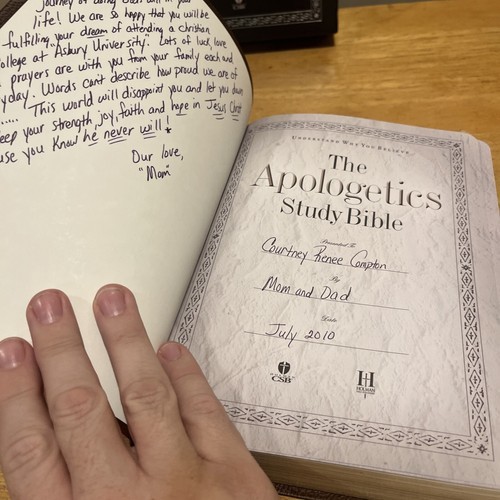 Journey of doing God's will in your
life! We are so happy that you will be
fulfilling your dream of attending a christian
college at "Asbury University". Lots of luck, love
prayers are with you from your family each and
yday. Words can't describe how proud we are of
..... This world will disappoint you and let you down
eep your strength, joy, faith and hope in Jesus Christ
use you know he never will!
Our love,
"Mom"
UNDERSTAND WHY YOU BELIEVE
The
Apologetics
Study Bible
Presented To
Courtney Renee Compton
By
Mom and Dad
Date
July 2010
CSB
H
HOLMAN